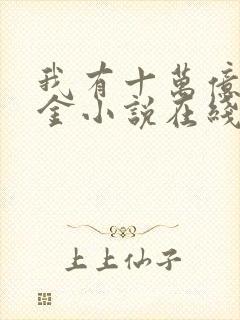 我有十萬億
金小說在綫
上上仙子